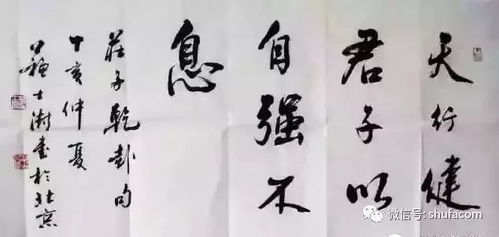 天行健
君子以
自强不
息
莊子乾卦句
丁亥仲夏
苏士澍書於北京
微信号: shufacom